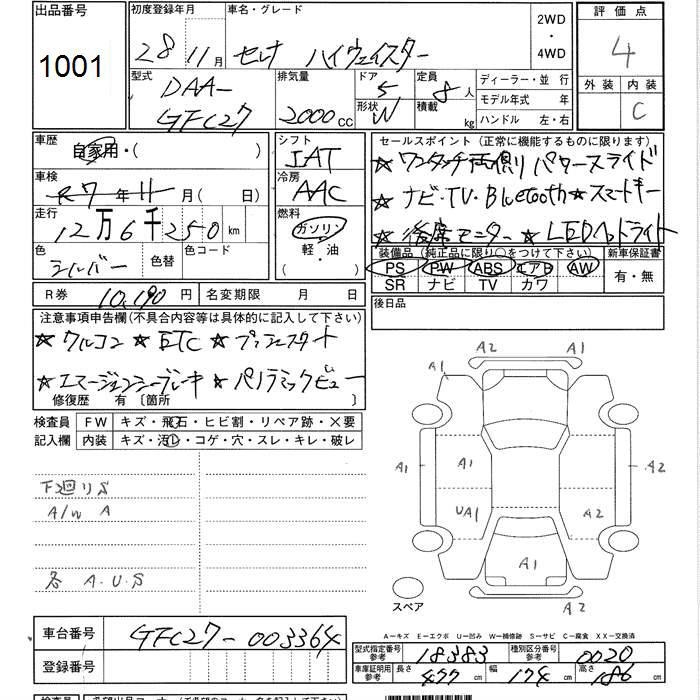 出品番号 初度登録年月 車名・グレード 2WD・4WD 評価点
1001 28 11月 セレナ ハイウェイスター 4
型式 排気量 ドア 定員 ディーラー・並行 外装 内装
DAA-GFC27 2000cc 5 8人 モデル年式 年 C
形状 W 積載 kg ハンドル 左・右
車歴 シフト セールスポイント (正常に機能するものに限ります)
自家用・( ) IAT ★ワンタッチ両側パワースライド
車検 冷房 ★ナビ・TV・Bluetooth★スマートキー
R7年11月( 日) AAC ★後席モニター ★LEDヘッドライト
走行 燃料
12万6千250km ガソリン・軽・油( )
色 色替 色コード 装備品 (純正品に限り○をつけて下さい) 新車保証書
シルバー PS PW ABS エアB AW 有・無
SR ナビ TV カワ
R券 10,190円 名変期限 月 日 後日品
注意事項申告欄(不具合内容等は具体的に記入して下さい)
★クルコン ★ETC ★プッシュスタート
★エマージェンシーブレーキ ★パノラミックビュー
修復歴 有 〔箇所 〕
検査員 FW キズ・飛石・ヒビ割・リペア跡・×要
記入欄 内装 キズ・汚レ・コゲ・穴・スレ・キレ・破レ
下廻りS
A/W A
各 A.U.S
A2 A1
A1
A1 A1 A2
UA1 A2
A1
A2
スペア
A−キズ E−エクボ U−凹み W−補修跡 S−サビ C−腐食 XX−交換済
車台番号 GFC27-003364
登録番号
型式指定番号 参考 18383 種別区分番号 参考 0020
車庫証明用 参考 長さ 477cm 幅 174cm 高さ 186cm